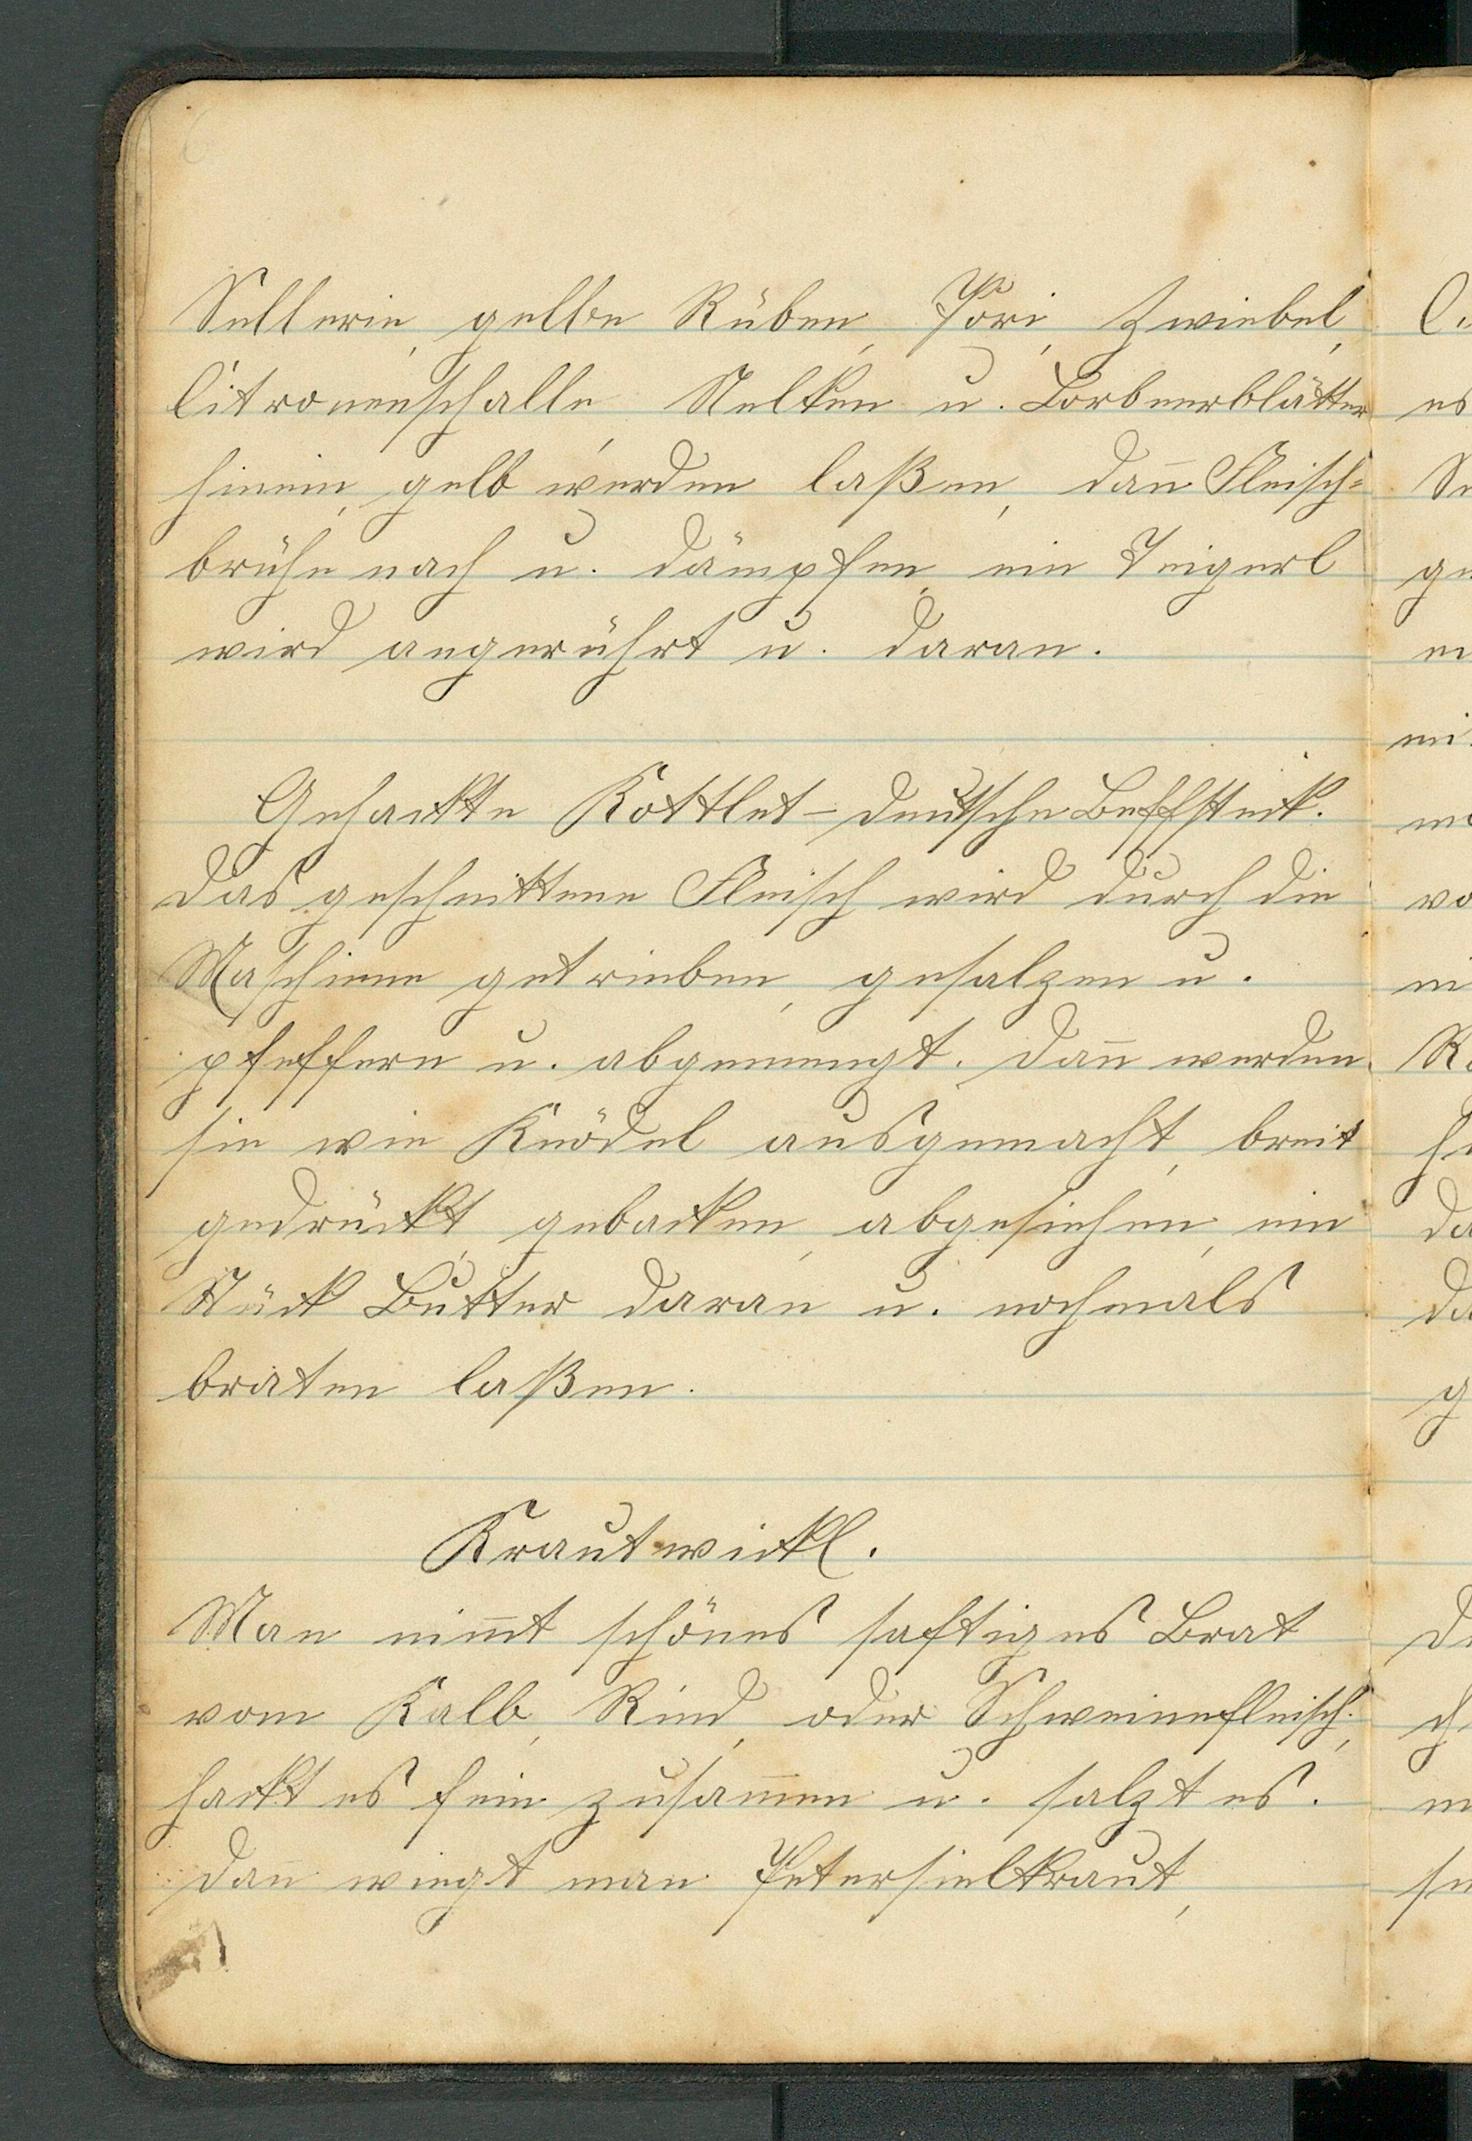 Sellerie, gelbe Rüben, Pori, Zwiebel,
Citronenschalle, Nelken u. Lorbeerblätter
hinein, gelb werden laßen, dann̄ Fleisch=
brühe nach u. dämpfen, ein Teigerl
wird angerührt u. daran.
Gehackte Kottlet - deutsche Beffsteck.
Das geschnittene Fleisch wird durch die
Maschiene getrieben, gesalzen u.
pfeffern u. abgemengt. Dan̄ werden
sie wie Knödel ausgemacht, breit
gedrückt, gebacken, abgesiehen, ein
Stück Butter daran u. nochmals
braten laßen.
Krautwickl.
Man nim̄t schönes saftiges Brat
vom Kalb, Rind, oder Schweinefleisch,
hackt es fein zusam̄en u. salzt es.
Dan̄ wiegt man Petersielkraut,